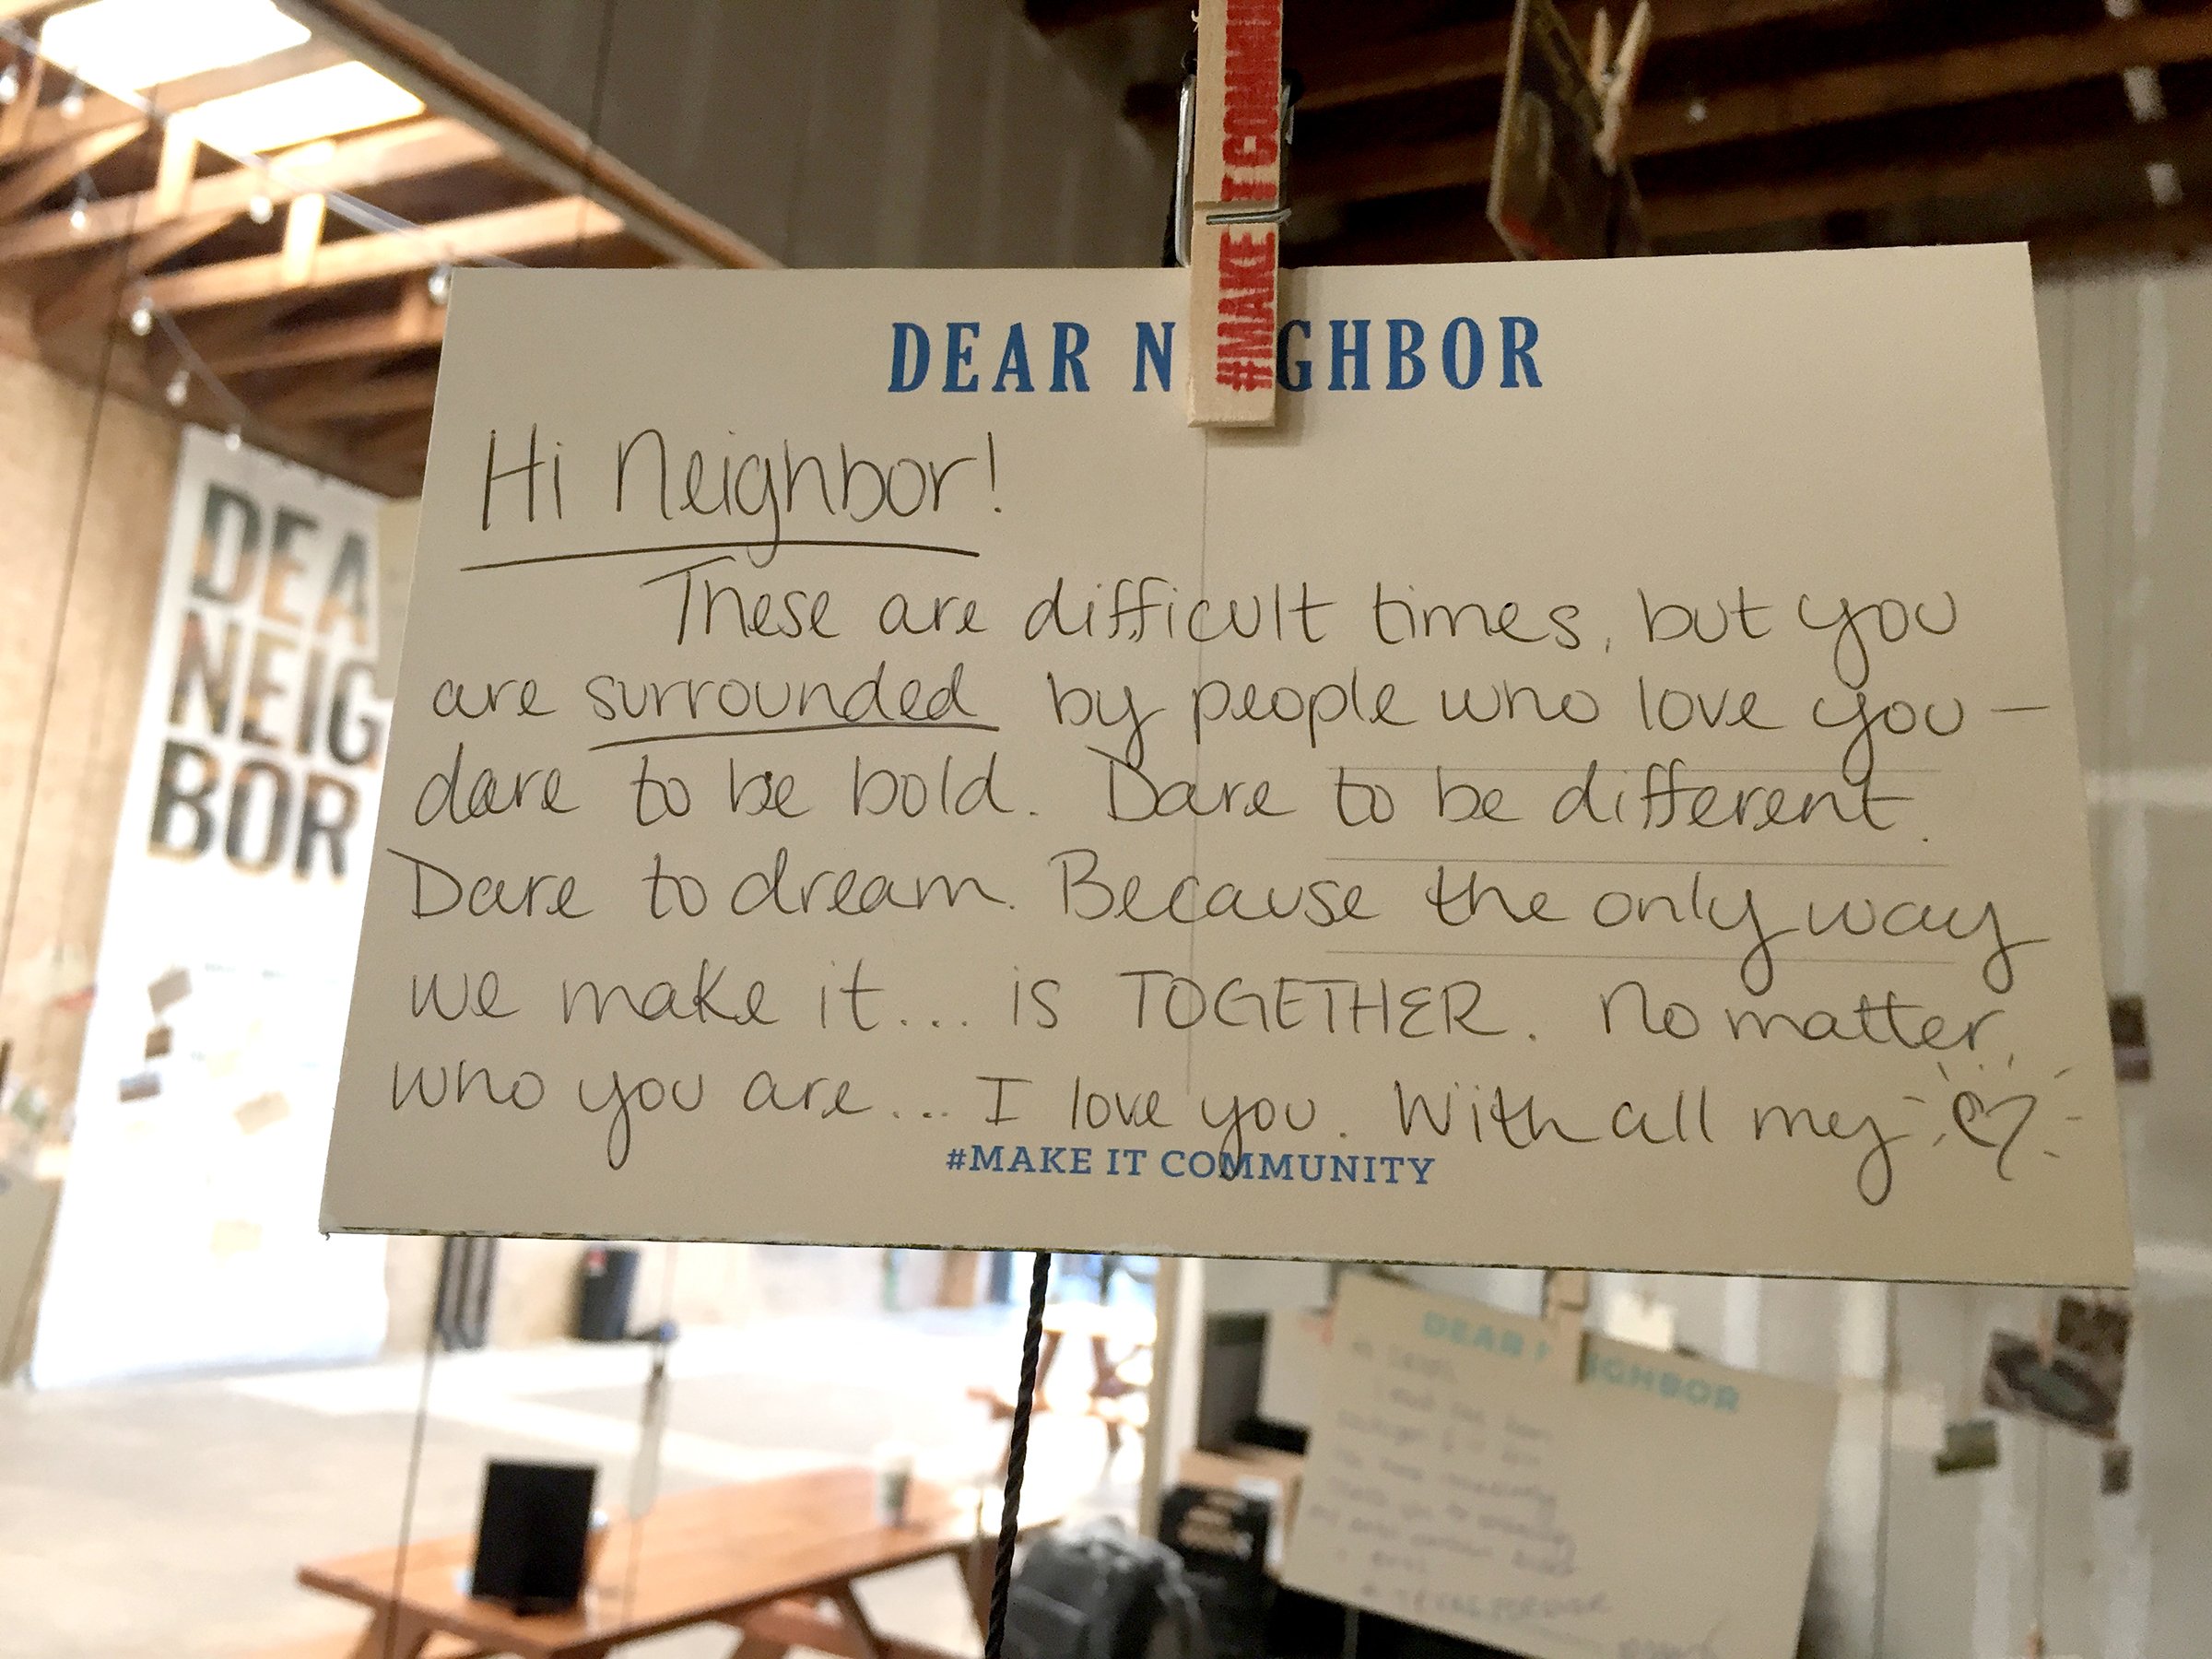 #MAKE IT COMMUN
DEAR N GHBOR
Hi Neighbor!
These are difficult times, but you
are surrounded by people who love you —
dare to be bold. Dare to be different.
Dare to dream. Because the only way
we make it... is TOGETHER. No matter
who you are... I love you. With all my
#MAKE IT COMMUNITY
DEA
NEIG
BOR
DEAR N IGHBOR